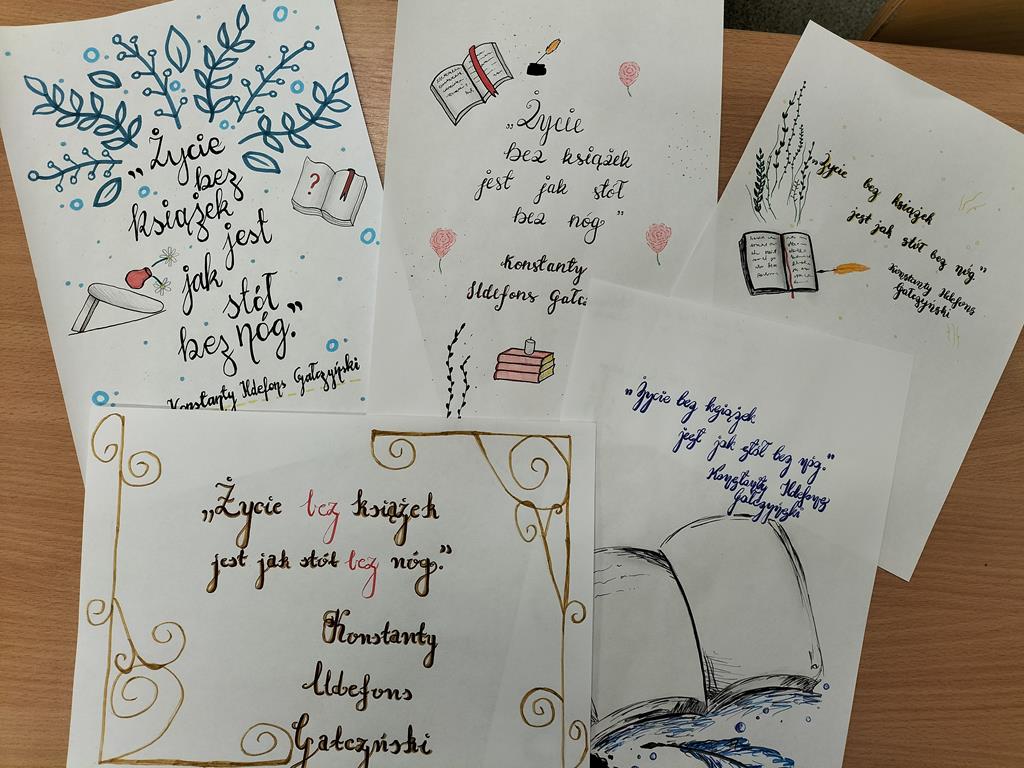 „Życie
bez
książek
jest
jak
stół
bez nóg."
Konstanty Ildefons Gałczyński
?
„Życie
bez książek
jest jak stół
bez nóg"
Konstanty
Ildefons Gałc
„Życie bez książek
jest jak stół bez nóg."
Konstanty Ildefons
Gałczyński
„Życie bez książek
jest jak stół bez nóg."
Konstanty
Ildefons
Gałczński
„Życie bez książek
jest jak stół bez nóg."
Konstanty Ildefons
Gałczyński